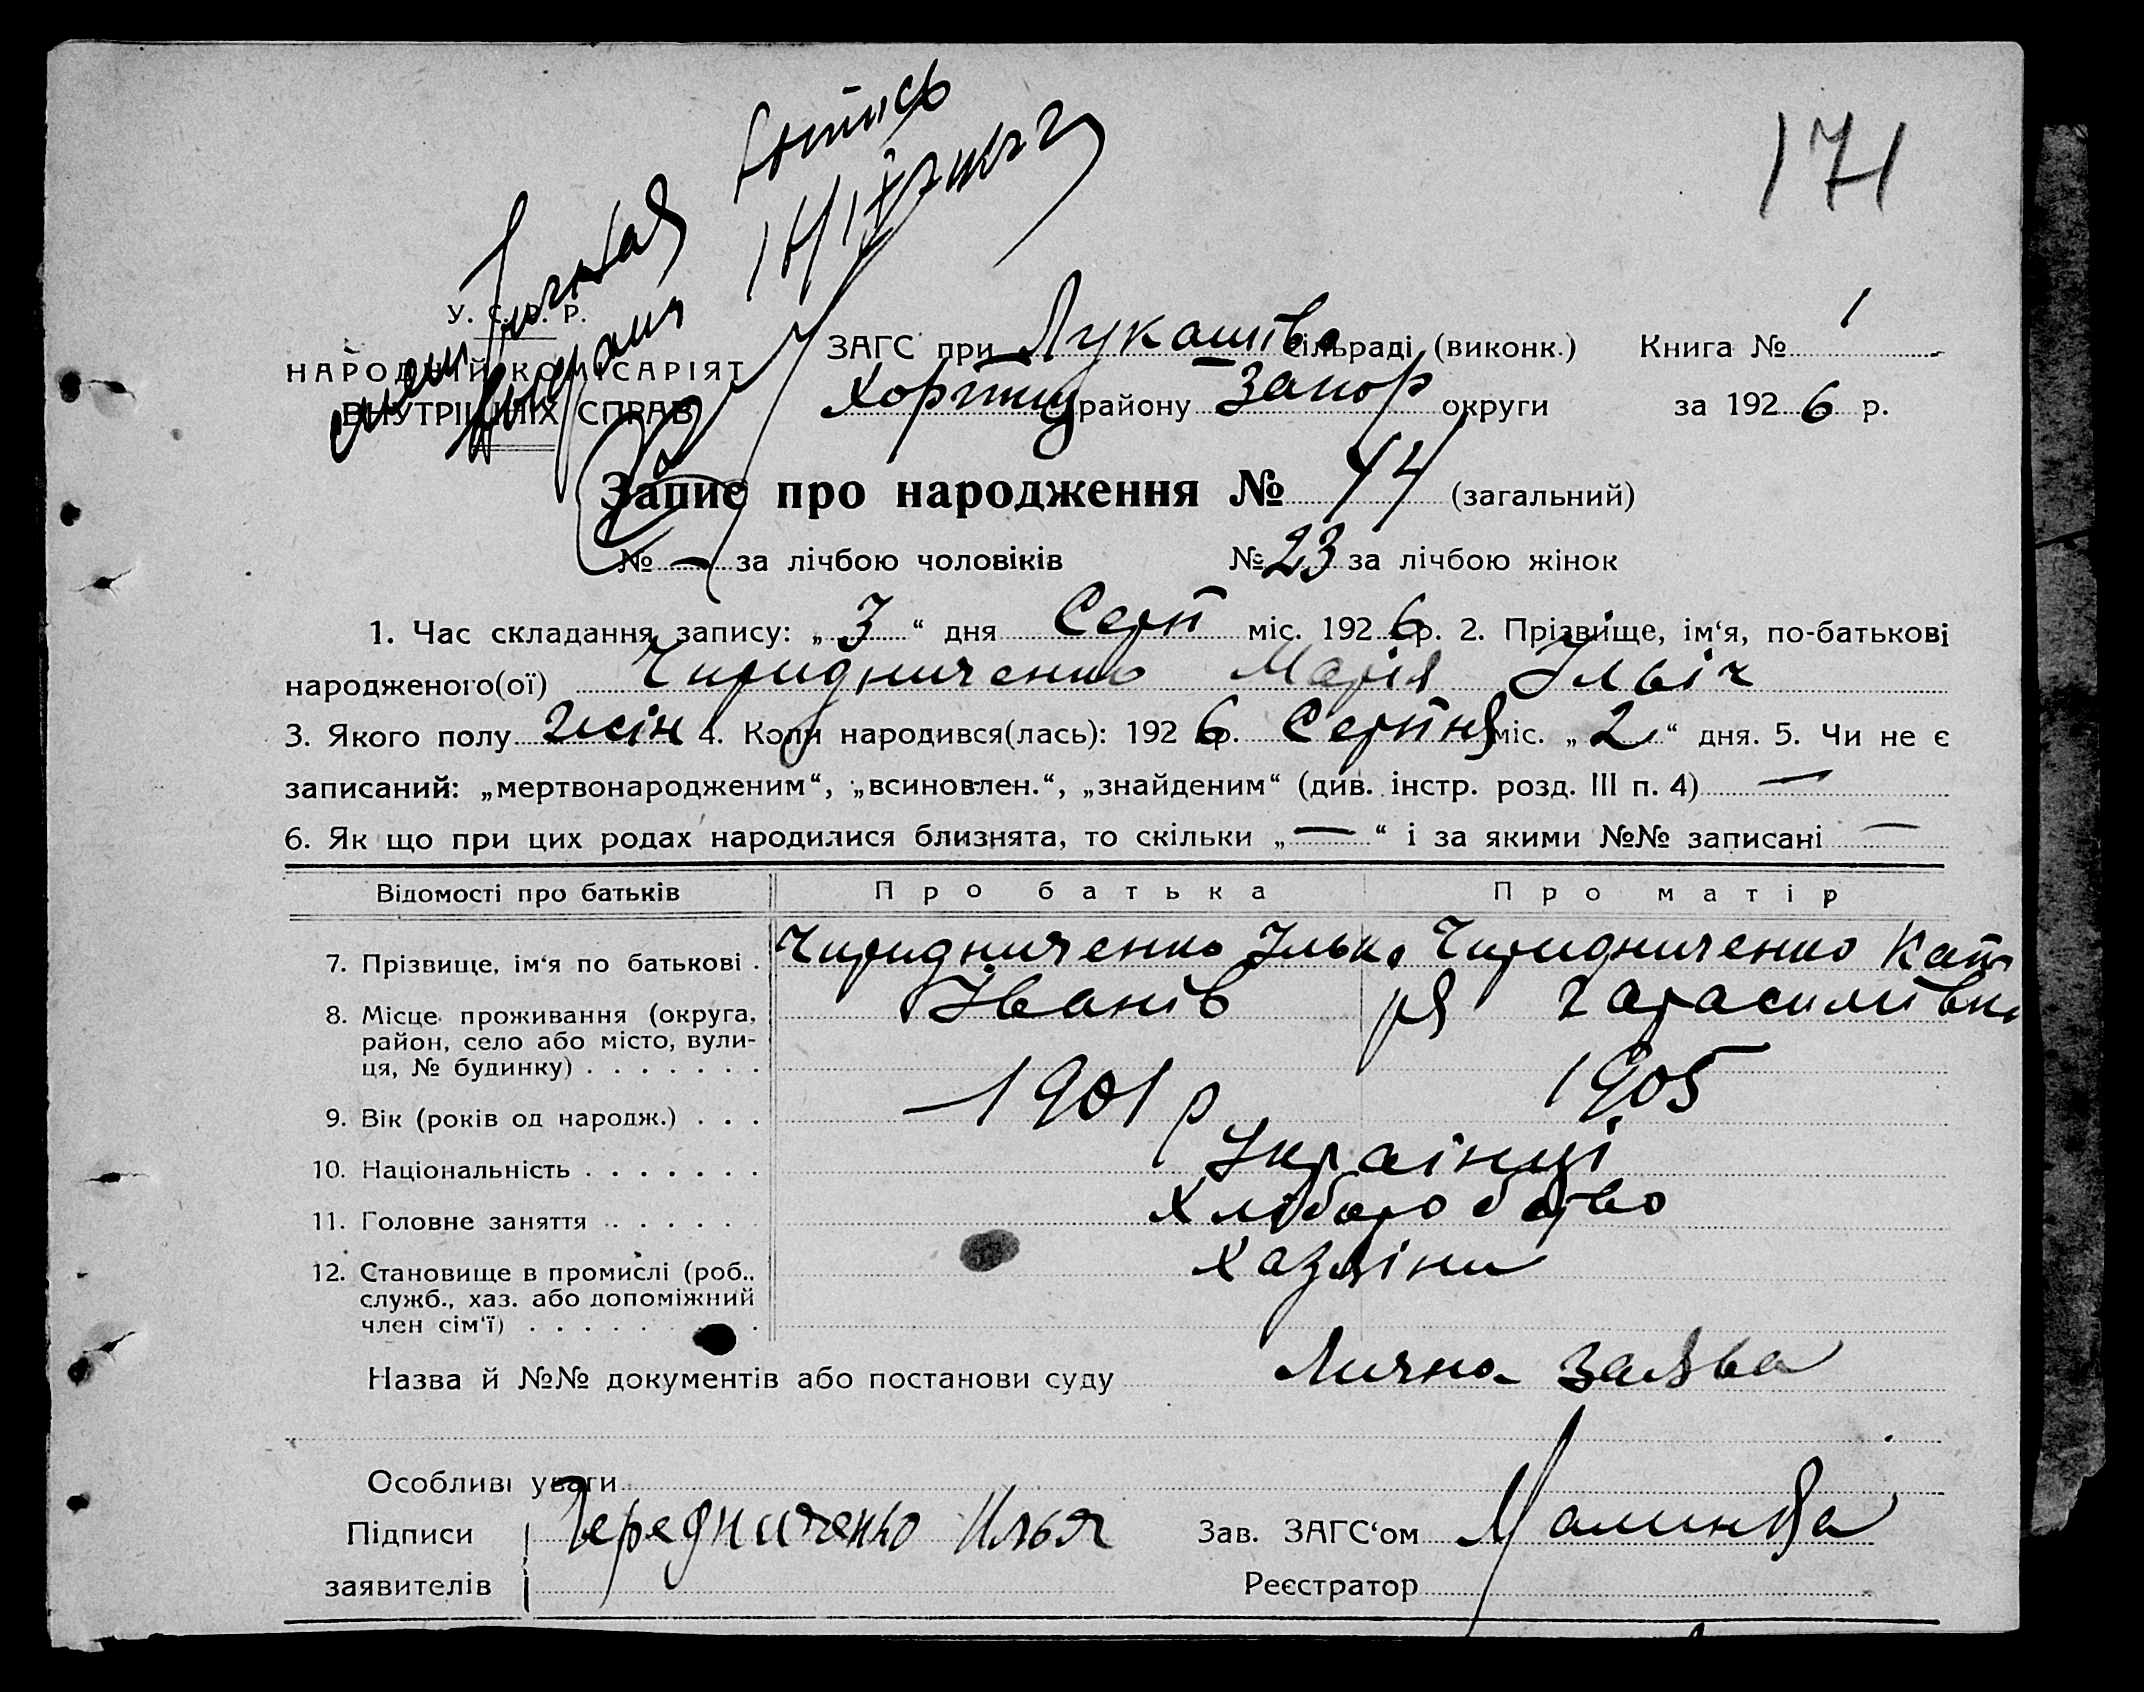 171
У. С. Р. Р.
НАРОДНІЙ КОМІСАРІЯТ
ВНУТРІШНІХ СПРАВ
ЗАГС при Лукашівс сільраді (виконк.) Книга № 1
Хортиц району Запор округи за 1926 р.
Запис про народження № 44 (загальний)
№ — за лічбою чоловіків № 23 за лічбою жінок
1. Час складання запису: „3“ дня Серп міс. 1926 р. 2. Прізвище, ім‘я, по-батькові
народженого(ої) Чиридниченко Марія Ільіч
3. Якого полу жін 4. Коли народився(лась): 1926 р. Серпня міс. „2“ дня. 5. Чи не є
записаний: „мертвонародженим“, „всиновлен.“, „знайденим“ (див. інстр. розд. III п. 4) —
6. Як що при цих родах народилися близнята, то скільки „—“ і за якими №№ записані —
Відомості про батьків Про батька Про матір
7. Прізвище, ім‘я по батькові . Чиридниченко Ілько Чиридниченко Кате
Іванів ря Гарасимівна
8. Місце проживання (округа,
район, село або місто, вули-
ця, № будинку) . . . . . . .
9. Вік (років од народж.) . . . 1901 р 1905
10. Національність . . . . . . . Українці
11. Головне заняття . . . . . . Хліборобство
12. Становище в промислі (роб., Хазяіни
служб., хаз. або допоміжний
член сім‘ї) . . . . . . . . .
Назва й №№ документів або постанови суду Лична заява
Особливі уваги
Підписи Чередниченко Илья Зав. ЗАГС‘ом
заявителів Реєстратор